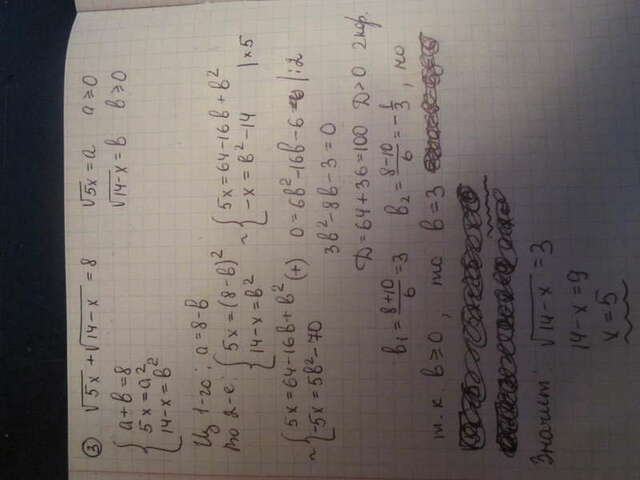 ③ √5x + √14-x = 8   √5x = a   a ≥ 0
{ a+b=8   √14-x = b   b ≥ 0
5x=a²
14-x=b²
Из 1-го: a=8-b
Во 2-е: { 5x=(8-b)² ~ { 5x=64-16b+b²
14-x=b²   -x=b²-14 | ×5
~ { 5x=64-16b+b² (+)   0=6b²-16b-6 |:2
-5x=5b²-70   3b²-8b-3=0
D=64+36=100   D>0   2 кор.
b₁=8+10/6=3   b₂=8-10/6=-1/3, но
т.к. b≥0, то b=3
Значит: √14-x=3
14-x=9
x=5